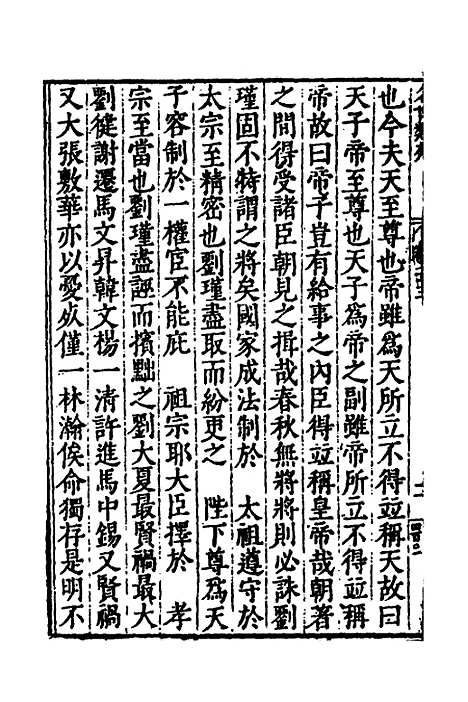 也今夫天至尊也帝雖爲天所立不得竝稱天故曰
天子帝至尊也天子爲帝之副雖帝所立不得竝稱
帝故曰帝子豈有給事之內臣得竝稱皇帝哉朝著
之間得受諸臣朝見之揖哉春秋無將將則必誅劉
瑾固不特謂之將矣國家成法制於　太祖遵守於
太宗至精密也劉瑾盡取而紛更之　陛下尊爲天
子容制於一權宦不能庇　祖宗耶大臣擇於　孝
宗至當也劉瑾盡誣而擯黜之劉大夏最賢禍最大
劉健謝遷馬文昇韓文楊一清許進馬中錫又賢禍
又大張敷華亦以憂死僅一林瀚俟命獨存是明不